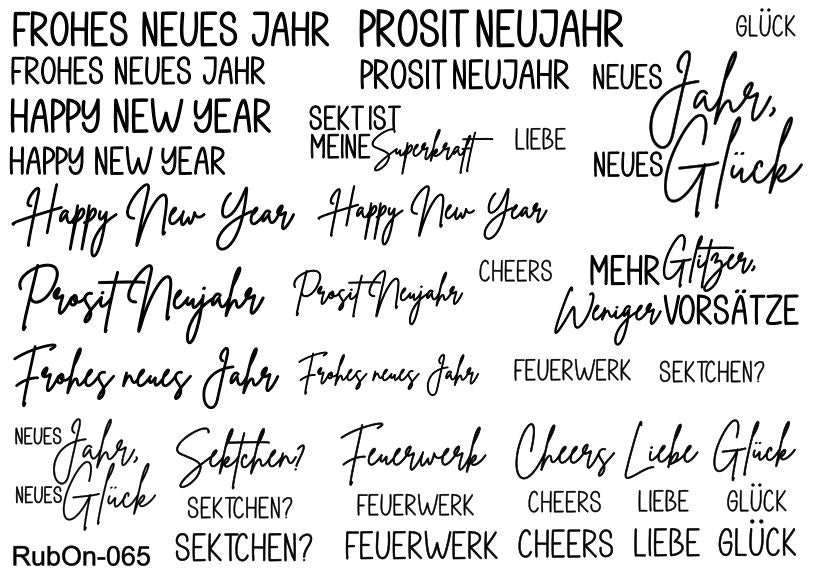 FROHES NEUES JAHR
PROSIT NEUJAHR
GLÜCK
FROHES NEUES JAHR
PROSIT NEUJAHR
NEUES Jahr,
NEUES Glück
HAPPY NEW YEAR
SEKT IST
MEINE Superkraft
LIEBE
HAPPY NEW YEAR
Happy New Year
Happy New Year
CHEERS
MEHR Glitzer,
Weniger VORSÄTZE
Prosit Neujahr
Prosit Neujahr
Frohes neues Jahr
Frohes neues Jahr
FEUERWERK
SEKTCHEN?
NEUES Jahr,
NEUES Glück
Sektchen?
Feuerwerk
Cheers
Liebe
Glück
SEKTCHEN?
FEUERWERK
CHEERS
LIEBE
GLÜCK
RubOn-065
SEKTCHEN?
FEUERWERK
CHEERS
LIEBE
GLÜCK